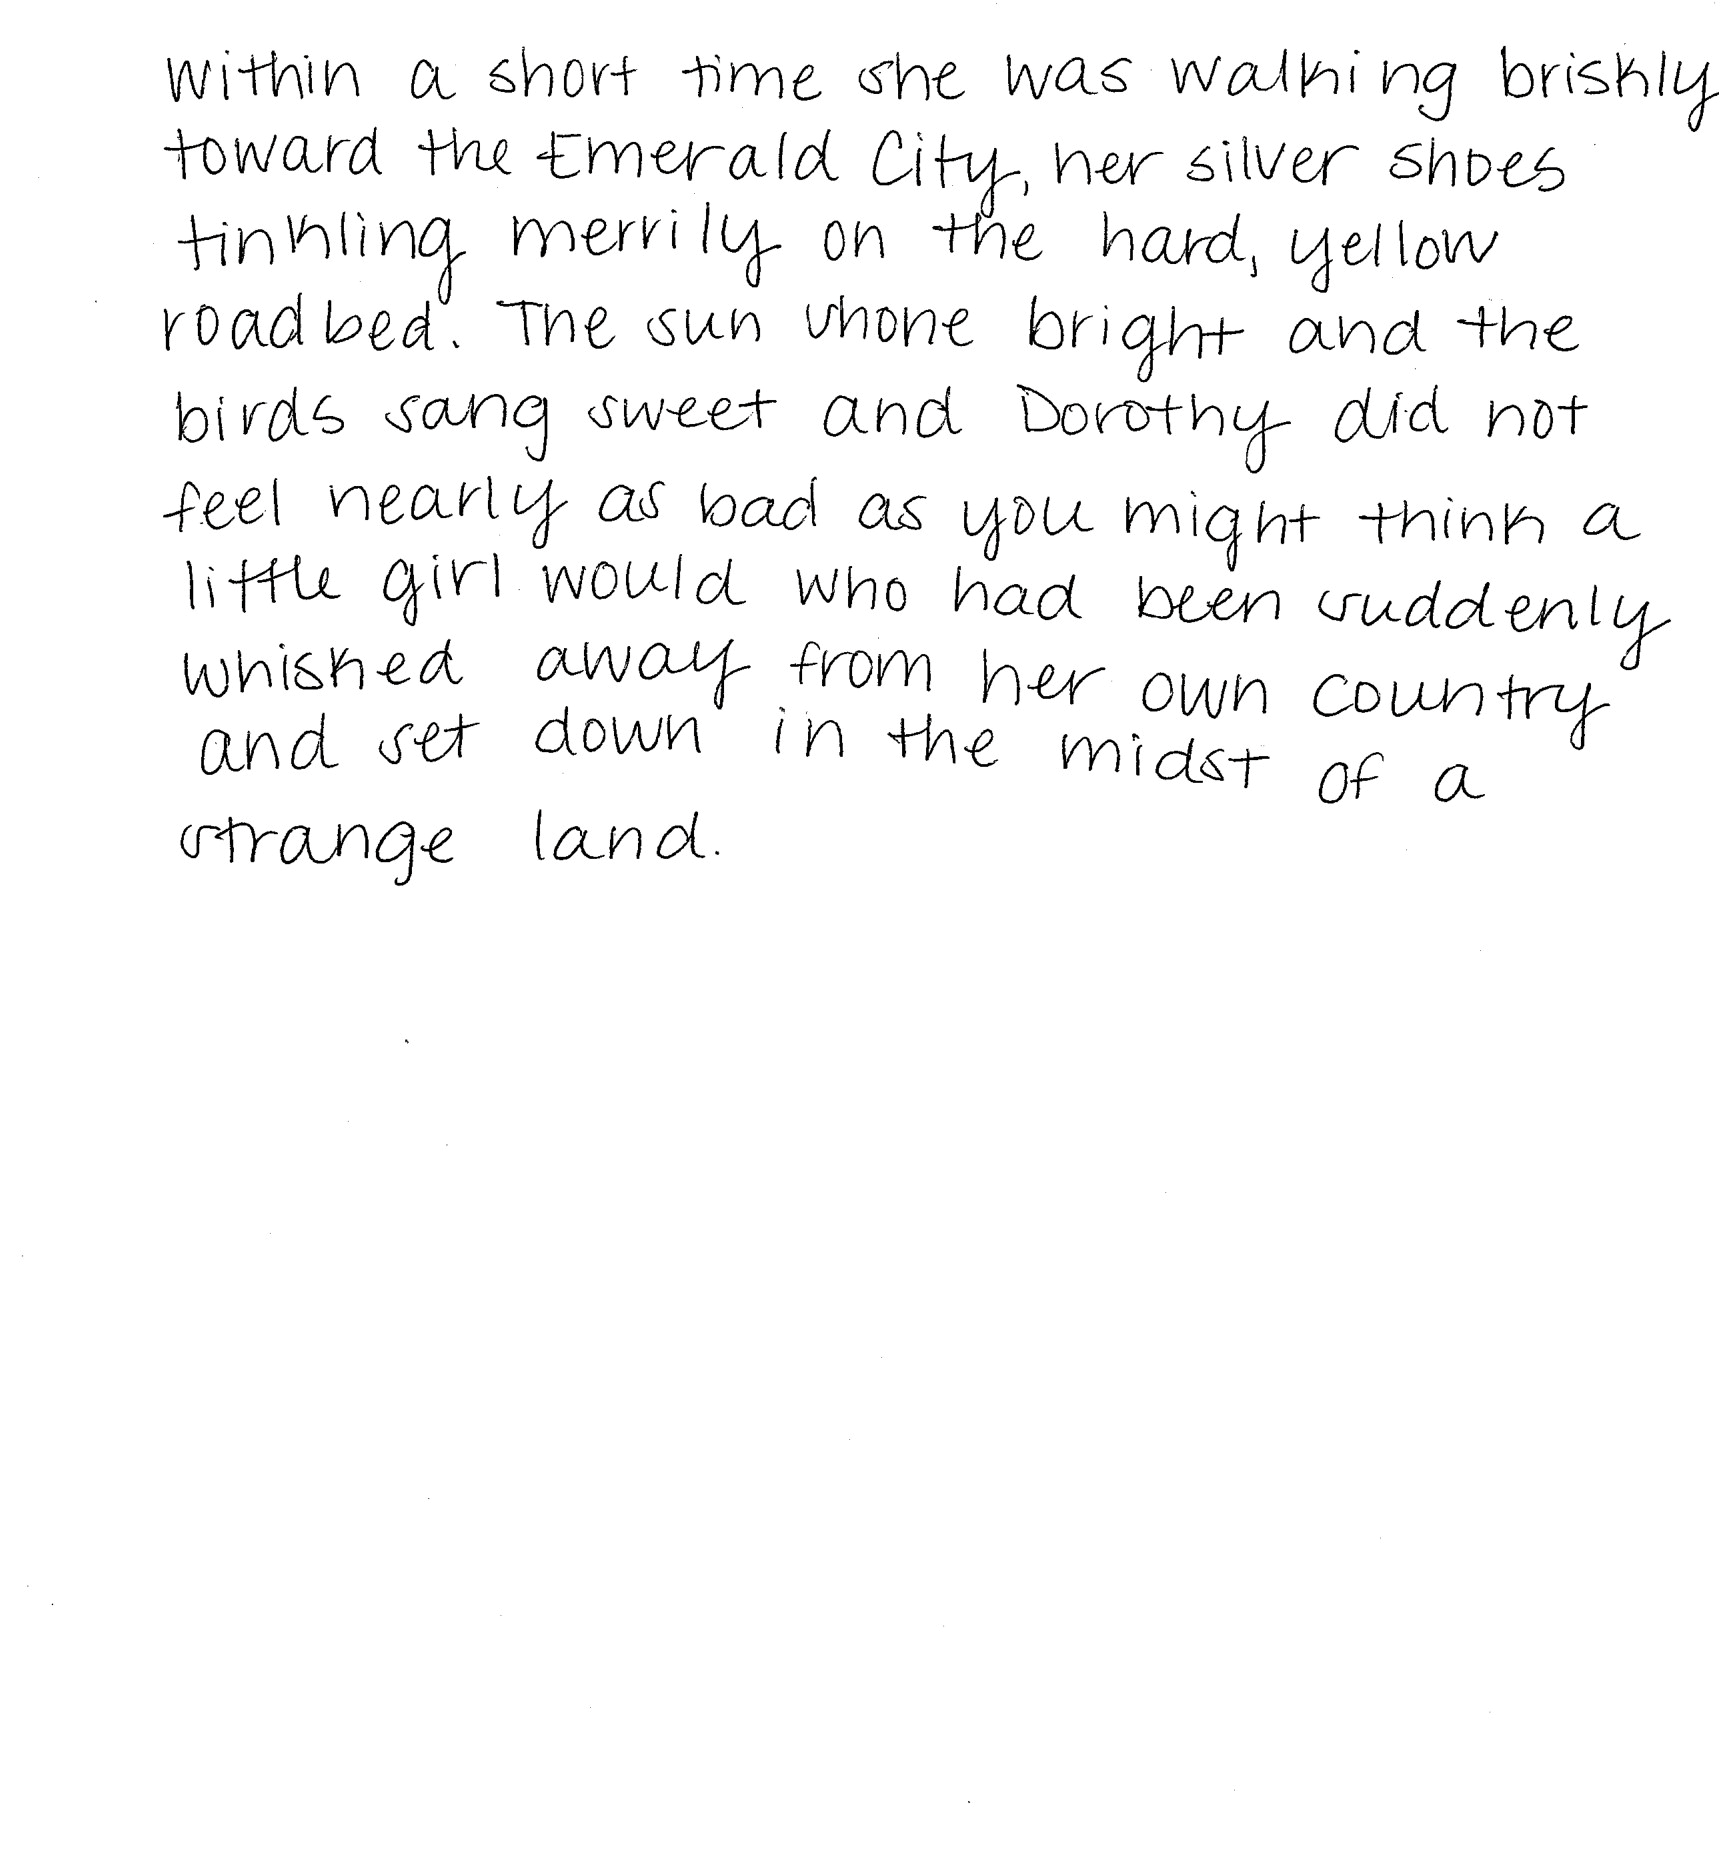 Within a short time she was walking briskly
toward the Emerald City, her silver shoes
tinkling merrily on the hard, yellow
roadbed. The sun shone bright and the
birds sang sweet and Dorothy did not
feel nearly as bad as you might think a
little girl would who had been suddenly
whisked away from her own country
and set down in the midst of a
strange land.